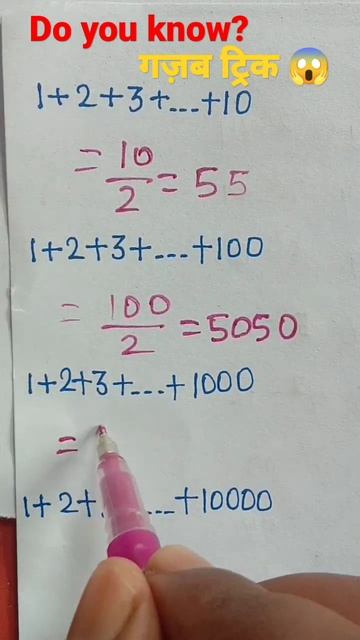 Do you know?
गज़ब ट्रिक 😱
1+2+3+...+10
= 10/2 = 55
1+2+3+---+100
= 100/2 = 5050
1+2+3+---+1000
=
1+2+. ..--+10000